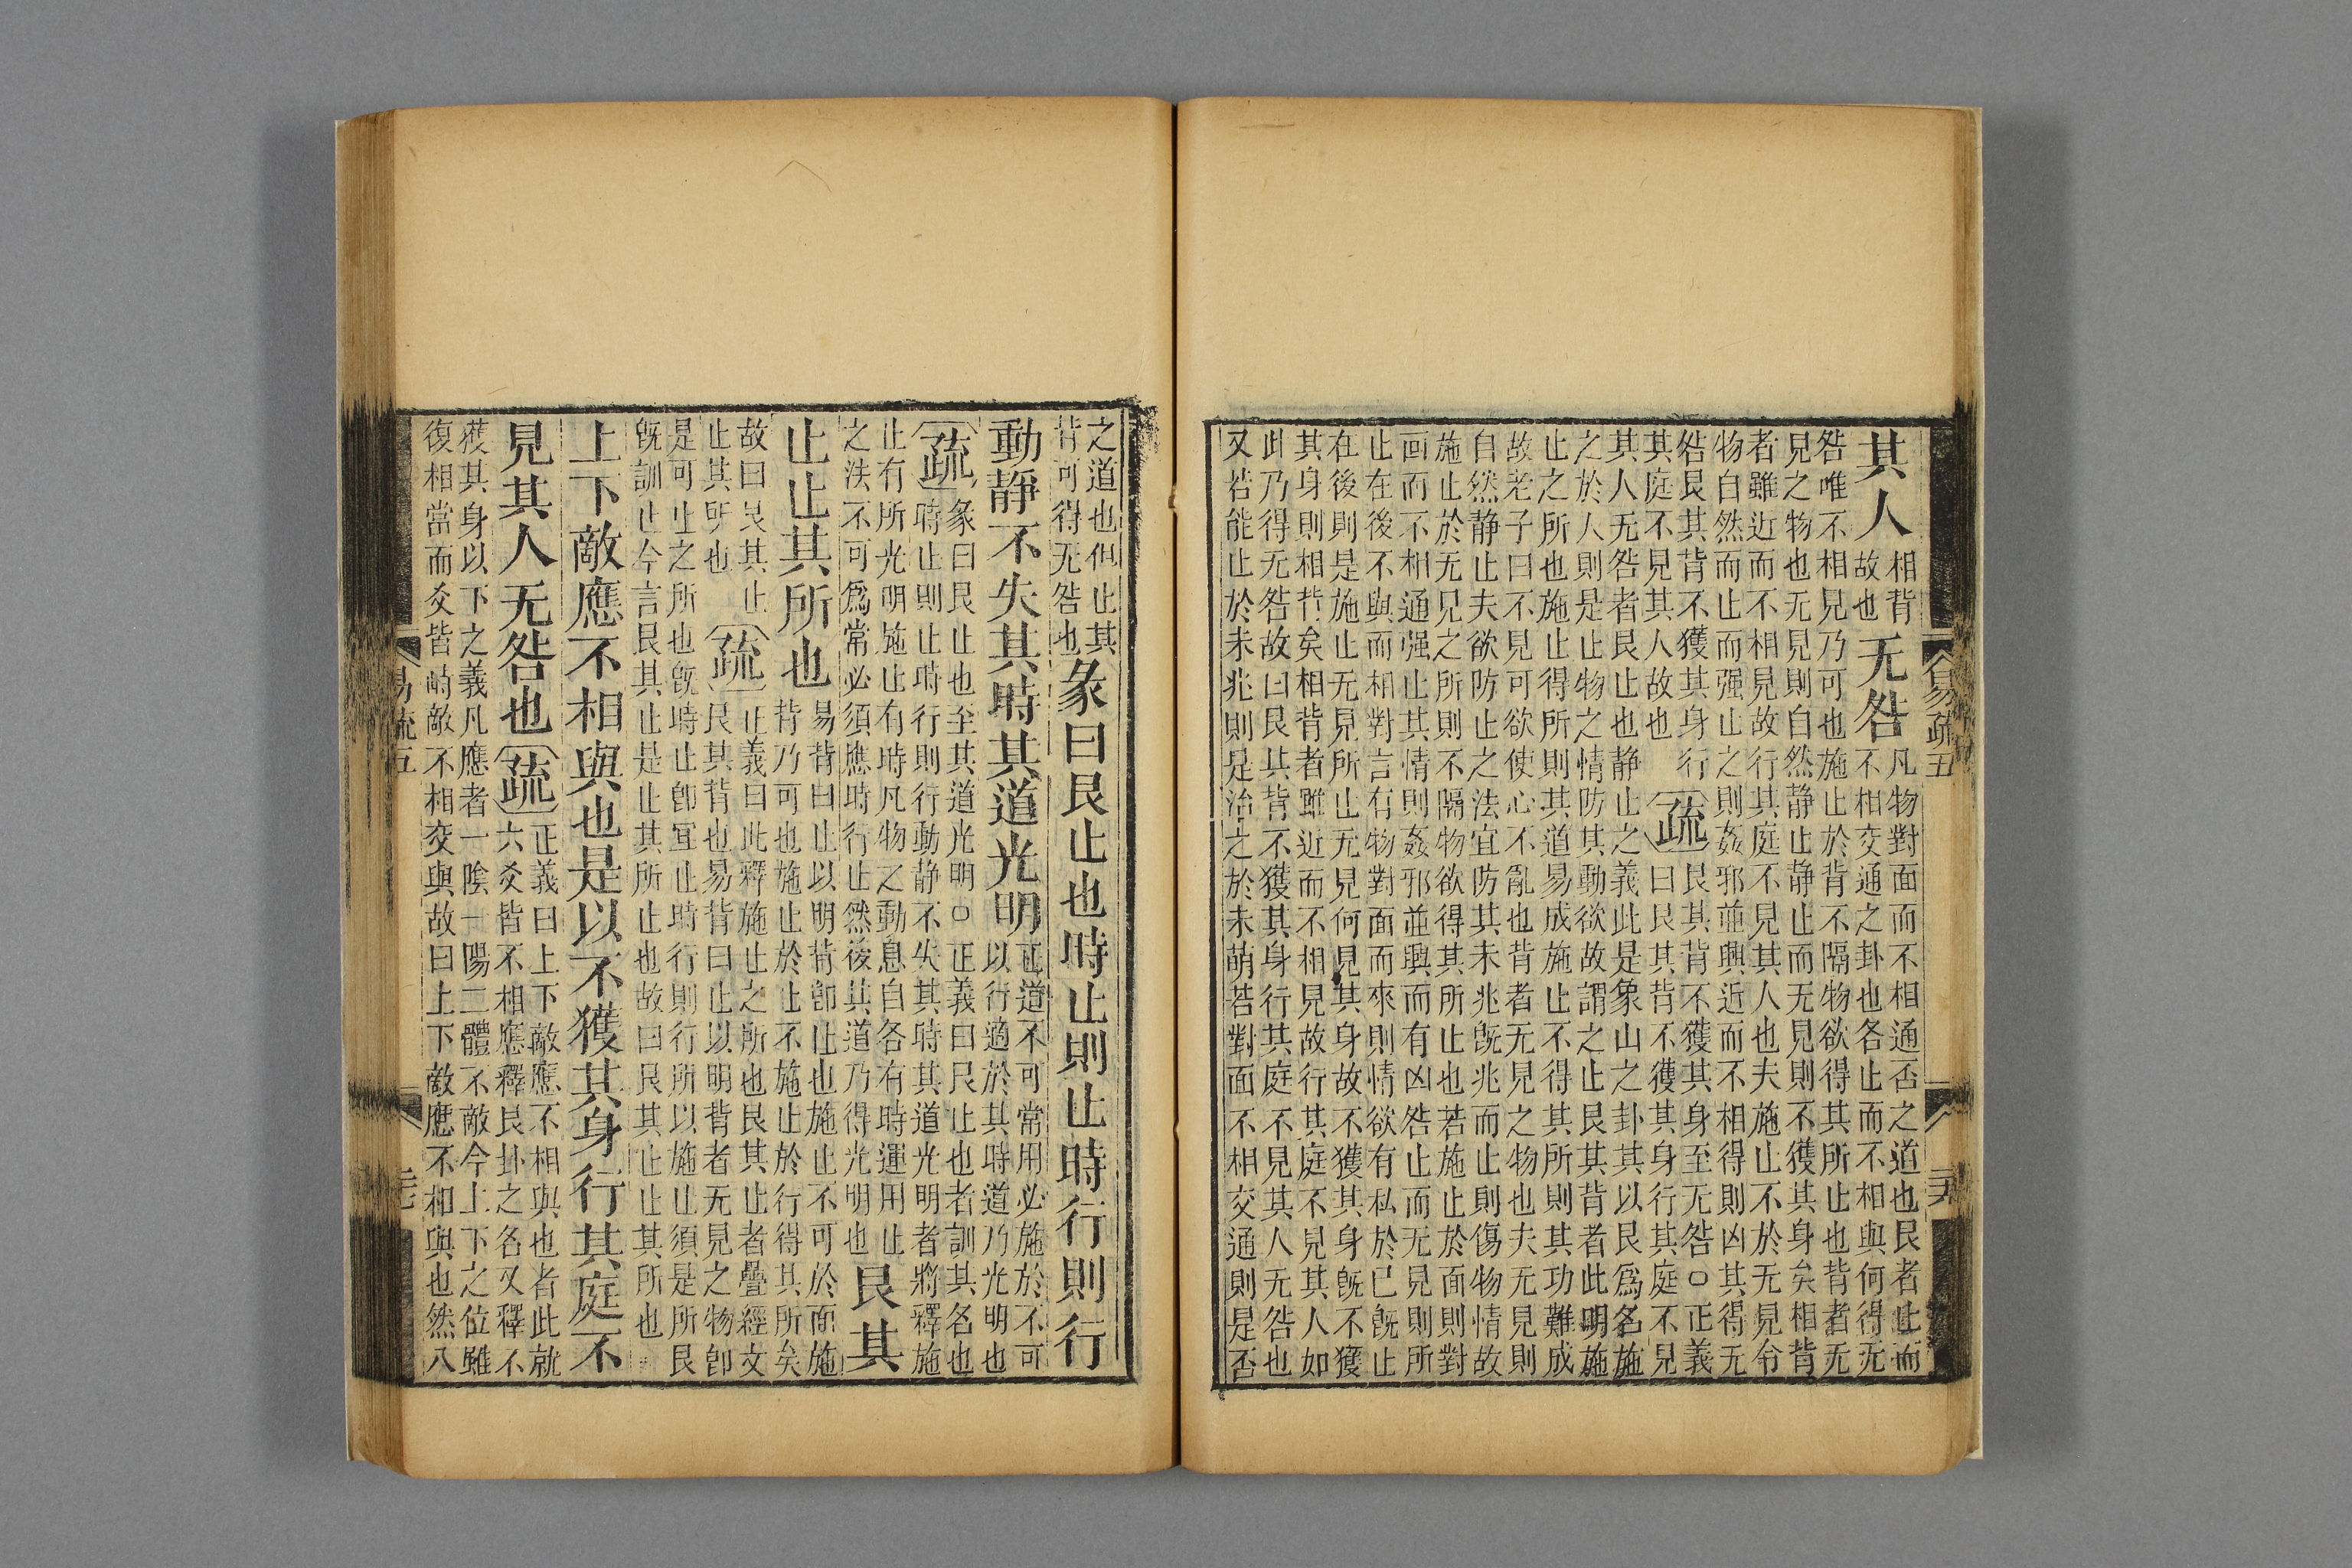 易疏五
其人
相背
故也
无咎
凡物對面而不相通否之道也艮者止而
不相交通之卦也各止而不相與何得无
咎唯不相見乃可也施止於背不隔物欲得其所止也背者无
見之物也无見則自然静止静止而无見則不獲其身矣相背
者雖近而不相見故行其庭不見其人也夫施止不於无見令
物自然而止而强止之則姦邪並興近而不相得則凶其得无
咎艮其背不獲其身行
其庭不見其人故也
疏
艮其背不獲其身至无咎○正義
曰艮其背不獲其身行其庭不見
其人无咎者艮止也静止之義此是象山之卦其以艮爲名施
之於人則是止物之情防其動欲故謂之止艮其背者此明施
止之所也施止得所則其道易成施止不得其所則其功難成
故老子曰不見可欲使心不亂也背者无見之物也夫无見則
自然静止夫欲防止之法宜防其未兆旣兆而止則傷物情故
施止於无見之所則不隔物欲得其所止也若施止於面則對
面而不相通强止其情則姦邪並興而有凶咎止而无見則所
止在後不與而相對言有物對面而來則情欲有私於已旣止
在後則是施止无見所止无見何見其身故不獲其身旣不獲
其身則相背矣相背者雖近而不相見故行其庭不見其人如
此乃得无咎故曰艮其背不獲其身行其庭不見其人无咎也
又若能止於未兆則是治之於未萌若對面不相交通則是否
之道也但止其
背可得无咎也
彖曰艮止也時止則止時行則行
動靜不失其時其道光明
正道不可常用必施於不可
以行適於其時道乃光明也
疏
彖曰艮止也至其道光明○正義曰艮止也者訓其名也
時止則止時行則行動静不失其時其道光明者將釋施
止有所光明施止有時凡物之動息自各有時運用止
之法不可爲常必須應時行止然後其道乃得光明也
艮其
止止其所也
易背曰止以明背卽止也施止不可於面施
背乃可也施止於止不施止於行得其所矣
故曰艮其止
止其所也
疏
正義曰此釋施止之所也艮其止者疊經文
艮其背也易背曰止以明背者无見之物卽
是可止之所也旣時止卽宜止時行則行所以施止須是所艮
旣訓止今言艮其止是止其所止也故曰艮其止止其所也
上下敵應不相與也是以不獲其身行其庭不
見其人无咎也
疏
正義曰上下敵應不相與也者此就
六爻皆不相應釋艮卦之名又釋不
獲其身以下之義凡應者一陰一陽二體不敵今上下之位雖
復相當而爻皆峙敵不相交與故曰上下敵應不相與也然八
易疏五